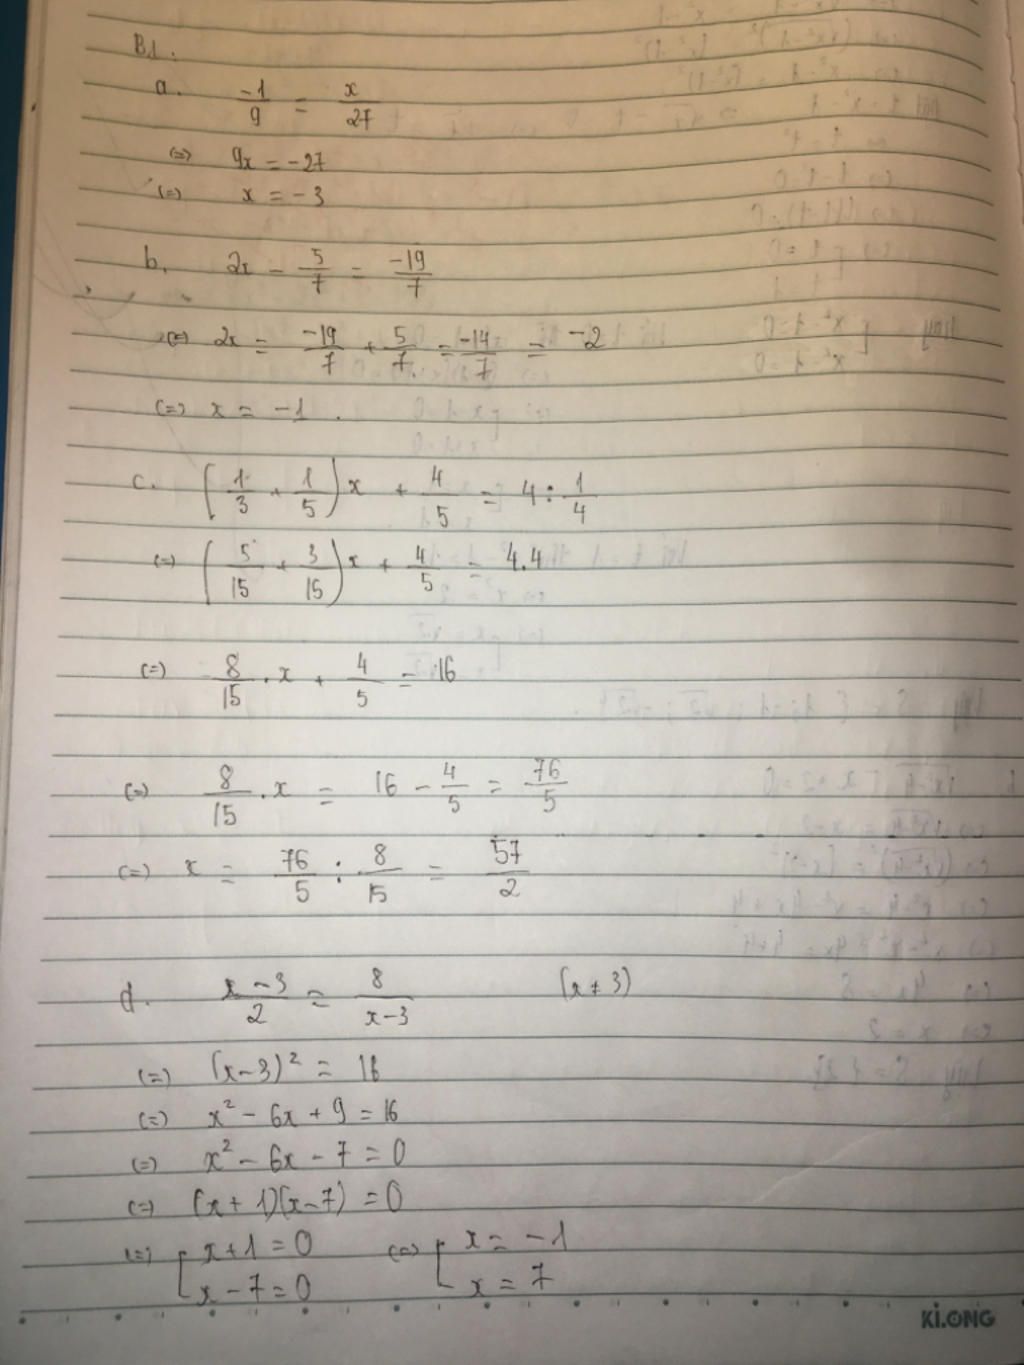 B1.
a. -1/9 = x/27
(=) 9x = -27
(=) x = -3
b. 2x - 5/7 = -19/7
(=) 2x = -19/7 + 5/7 = -14/7 = -2
(=) x = -1.
c. (1/3 + 1/5)x + 4/5 = 4 : 1/4
(=) (5/15 + 3/15)x + 4/5 = 4.4
(=) 8/15 . x + 4/5 = 16
(=) 8/15 . x = 16 - 4/5 = 76/5
(=) x = 76/5 : 8/15 = 57/2
d. x-3/2 = 8/x-3 (x ≠ 3)
(=) (x-3)² = 16
(=) x² - 6x + 9 = 16
(=) x² - 6x - 7 = 0
(=) (x+1)(x-7) = 0
(=) [ x+1 = 0 (=) [ x = -1
x-7 = 0 x = 7
KI.ONG